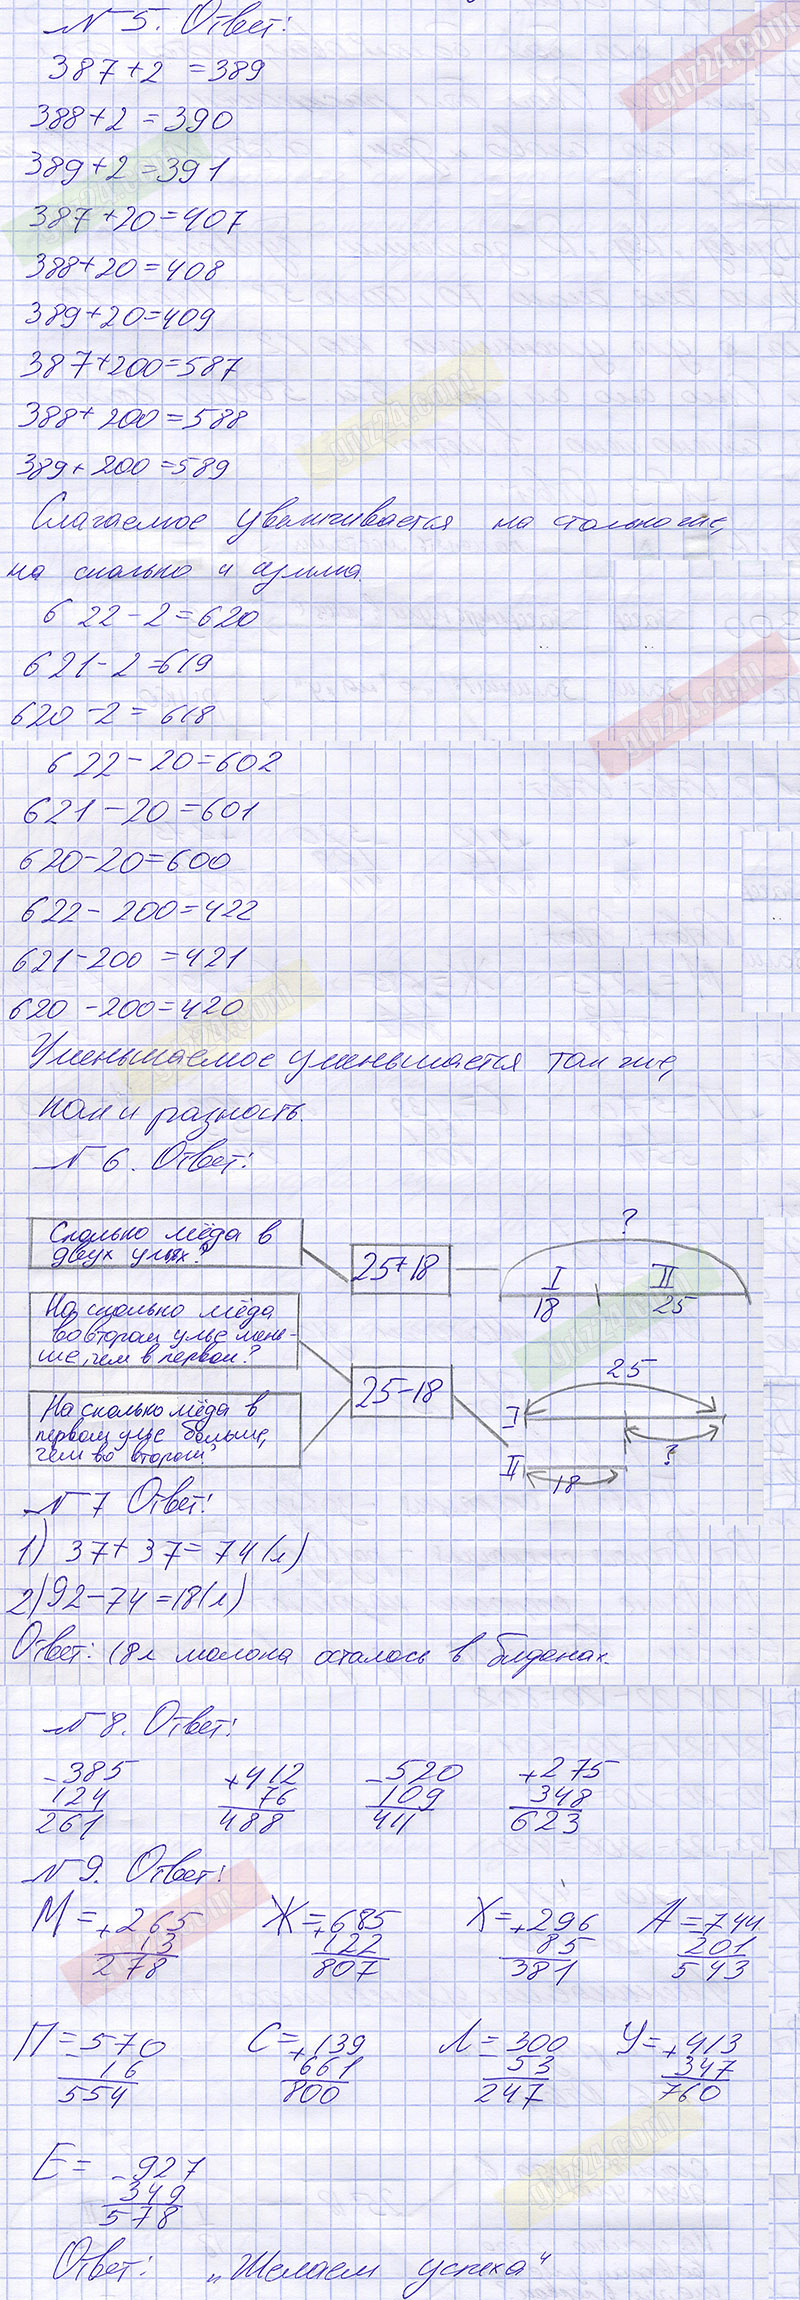 № 5. Ответ:
387+2 =389
388+2 =390
389+2 =391
387+20=407
388+20=408
389+20=409
387+200=587
388+200=588
389+200=589
Слагаемое увеличивается на столько же,
на сколько и сумма.
622-2=620
621-2=619
620-2=618
622-20=602
621-20=601
620-20=600
622-200=422
621-200=421
620-200=420
Уменьшаемое уменьшается так же,
как и разность.
№ 6. Ответ:
Сколько мёда в
двух ульях?
25+18
?
I II
18 25
На сколько мёда
во втором улье мень-
ше, чем в первом?
На сколько мёда в
первом улье больше,
чем во втором?
25-18
25
I
?
II
18
№ 7 Ответ:
1) 37+37=74(л)
2) 92-74=18(л)
Ответ: 18л молока осталось в бидонах.
№ 8. Ответ:
-385 +412 -520 +275
124 76 109 348
261 488 411 623
№ 9. Ответ:
М=+265 Ж=+685 Х=+296 А=-744
13 122 85 201
278 807 381 543
П=-570 С=+139 Л=-300 У=+413
16 661 53 347
554 800 247 760
Е=-927
349
578
Ответ: „Желаем успеха"
gdz24.com
gdz24.com
gdz24.com
gdz24.com
gdz24.com
gdz24.com
gdz24.com
gdz24.com